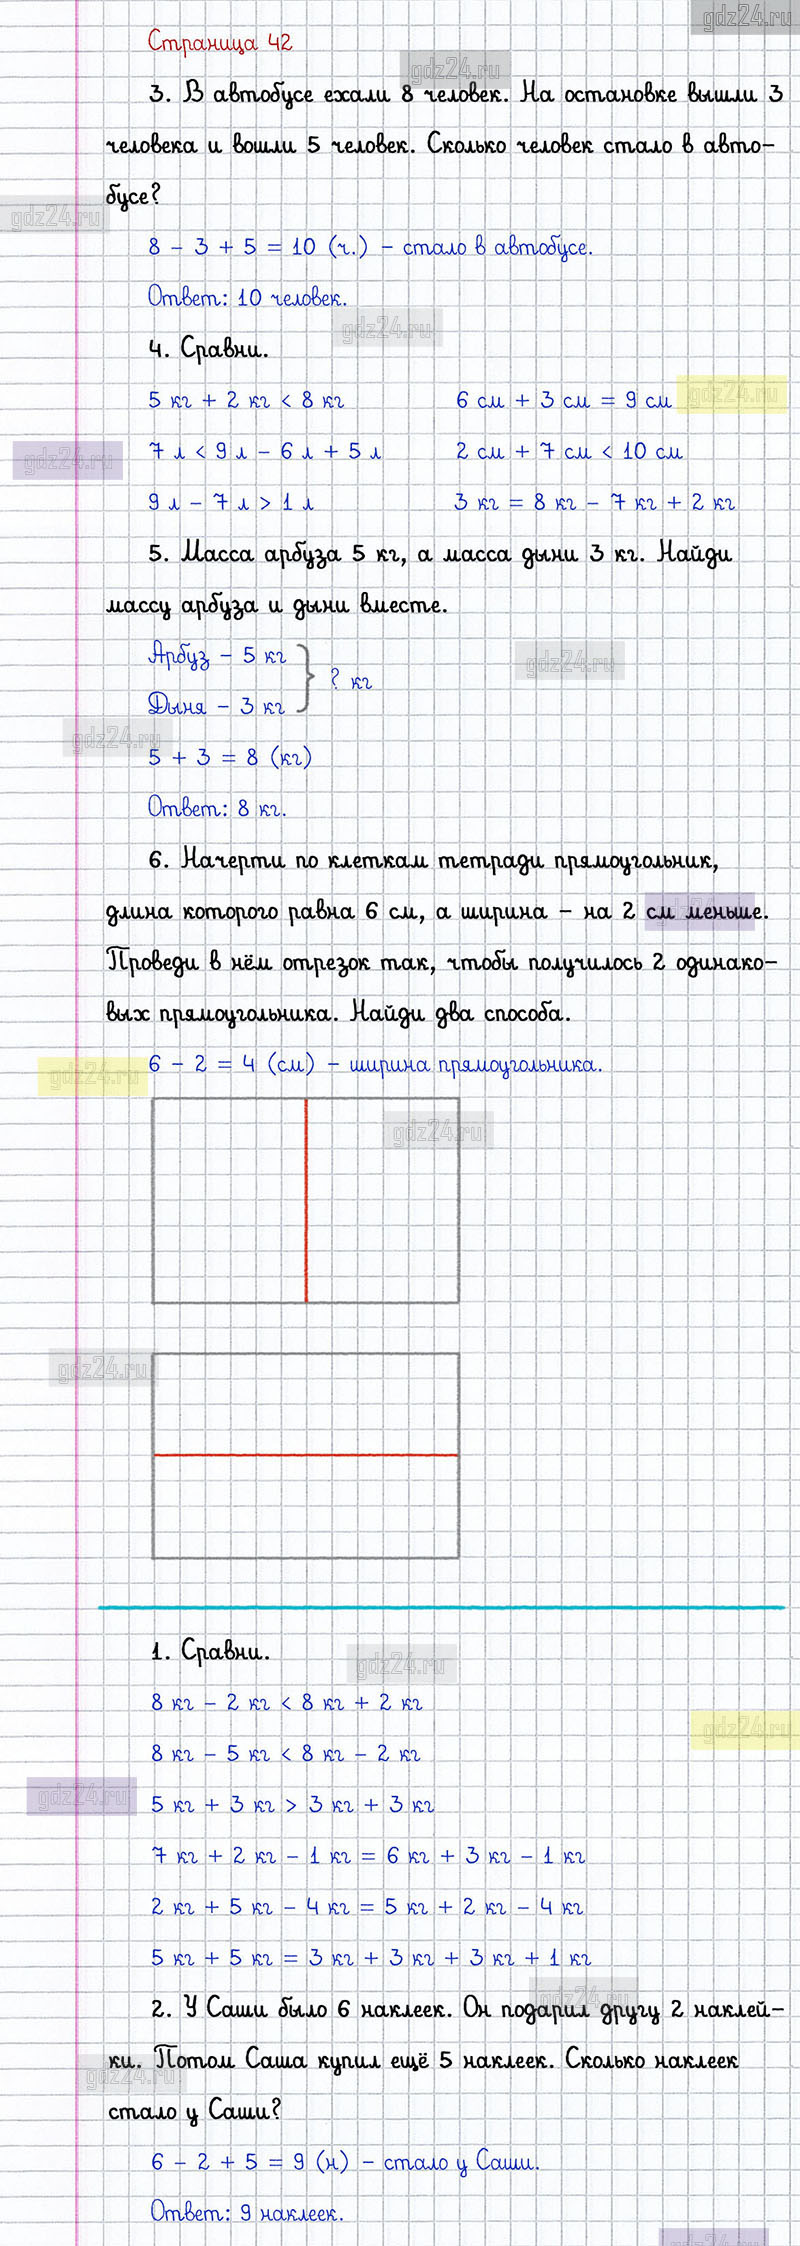 gdz24.ru
Страница 42
gdz24.ru
3. В автобусе ехали 8 человек. На остановке вышли 3
человека и вошли 5 человек. Сколько человек стало в авто-
бусе?
gdz24.ru
8 - 3 + 5 = 10 (ч.) - стало в автобусе.
Ответ: 10 человек.
gdz24.ru
4. Сравни.
5 кг + 2 кг < 8 кг 6 см + 3 см = 9 см
gdz24.ru
7 л < 9 л - 6 л + 5 л 2 см + 7 см < 10 см
gdz24.ru
9 л - 7 л > 1 л 3 кг = 8 кг - 7 кг + 2 кг
5. Масса арбуза 5 кг, а масса дыни 3 кг. Найди
массу арбуза и дыни вместе.
Арбуз - 5 кг
gdz24.ru
? кг
Дыня - 3 кг
gdz24.ru
5 + 3 = 8 (кг)
Ответ: 8 кг.
6. Начерти по клеткам тетради прямоугольник,
длина которого равна 6 см, а ширина - на 2 см меньше.
gdz24.ru
Проведи в нём отрезок так, чтобы получилось 2 одинако-
вых прямоугольника. Найди два способа.
6 - 2 = 4 (см) - ширина прямоугольника.
gdz24.ru
gdz24.ru
gdz24.ru
1. Сравни.
gdz24.ru
8 кг - 2 кг < 8 кг + 2 кг
gdz24.ru
8 кг - 5 кг < 8 кг - 2 кг
gdz24.ru
5 кг + 3 кг > 3 кг + 3 кг
7 кг + 2 кг - 1 кг = 6 кг + 3 кг - 1 кг
2 кг + 5 кг - 4 кг = 5 кг + 2 кг - 4 кг
5 кг + 5 кг = 3 кг + 3 кг + 3 кг + 1 кг
gdz24.ru
2. У Саши было 6 наклеек. Он подарил другу 2 наклей-
ки. Потом Саша купил ещё 5 наклеек. Сколько наклеек
gdz24.ru
стало у Саши?
6 - 2 + 5 = 9 (н) - стало у Саши.
Ответ: 9 наклеек.
gdz24.ru